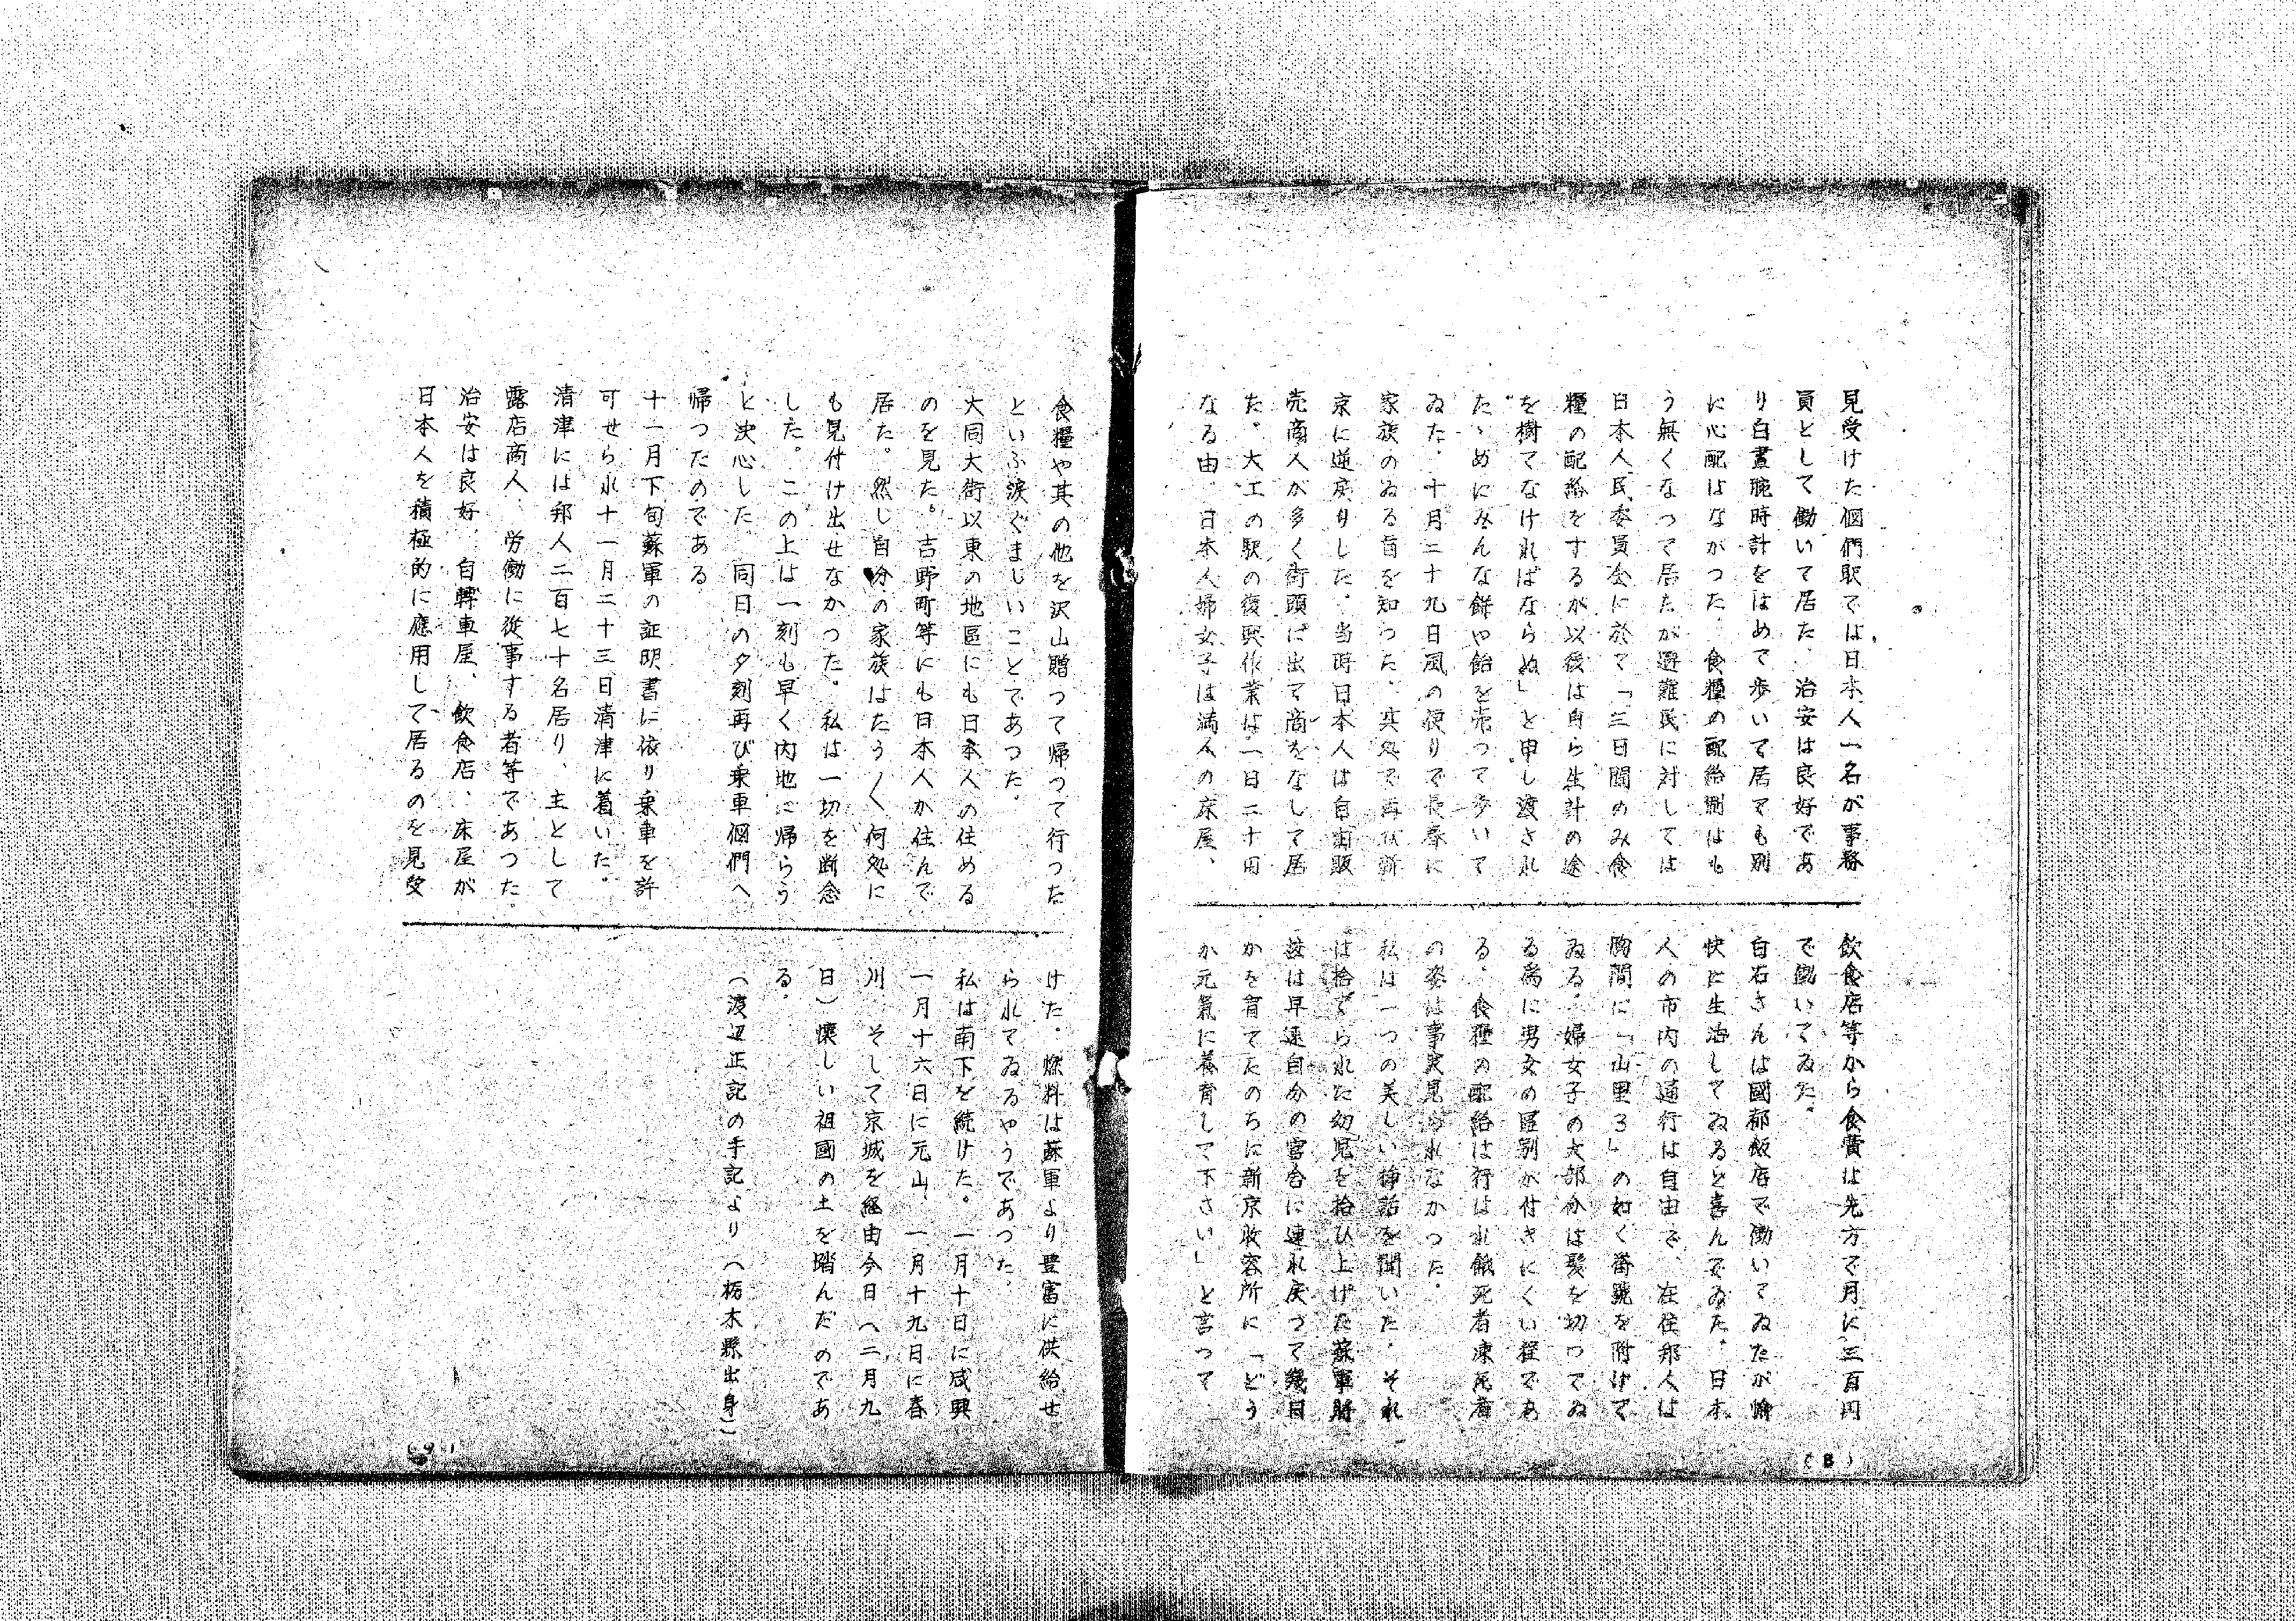 見受けた個們駅では日本人一名が事務
員として働いて居た、治安は良好であ
り白晝腕時計をはめて歩いて居ても別
に心配はなかつた、食糧の配給制はも
う無くなつて居たが避難民に対しては
日本人民委員会に於て「三日間のみ食
糧の配給をするが以後は自ら生計の途
を樹てなければならぬ」と申し渡され
たゝめにみんな餅や飴を売つて歩いて
ゐた、十月二十九日風の便りで長春に
家族のゐる旨を知つた、其処で再び新
京に逆戻りした、当時日本人は自由販
売商人が多く街頭に出て商をなして居
た。大工の駅の復興作業は一日二十円
なる由、日本人婦女子は満人の床屋、
飲食店等から食費は先方で月に三百円
で働いてゐた。
白石さんは國都飯店で働いてゐたが愉
快に生活してゐると喜んでゐた。日本
人の市内の通行は自由で、在住邦人は
胸間に「山里3」の如く番號を附けて
ゐる。婦女子の大部分は髪を切つてゐ
る為に男女の區別が付きにくい程であ
る、食糧の配給は行はれ餓死者凍死者
の姿は事実見られなかつた。
私は一つの美しい挿話を聞いた、それ
は捨てられた幼児を拾ひ上げた蘇軍将
校は早速自分の宿舎に連れ戻つて幾日
かを育てたのちに新京收容所に「どう
か元氣に養育して下さい」と言つて
(8)
食糧や其の他を沢山贈つて帰つて行つた
といふ涙ぐましいことであつた。
大同大街以東の地區にも日本人の住める
のを見た。吉野町等にも日本人が住んで
居た。然し自分の家族はたう〱何処に
も見付け出せなかつた。私は一切を断念
した。この上は一刻も早く内地に帰らう
と決心した、同日の夕刻再び乗車個們へ
帰つたのである
十一月下旬蘇軍の証明書に依り乗車を許
可せられ十一月二十三日清津に着いた。
清津には邦人二百七十名居り、主として
露店商人、労働に従事する者等であつた。
治安は良好、自轉車屋、飲食店、床屋が
日本人を積極的に應用して居るのを見受
けた。燃料は蘇軍より豊富に供給せ
られてゐるやうであつた。
私は南下を続けた。一月十日に咸興
一月十六日に元山、一月十九日に春
川、そして京城を経由今日（二月九
日）懐しい祖國の土を踏んだのであ
る。
（渡辺正記の手記より（栃木縣出身）
(9)